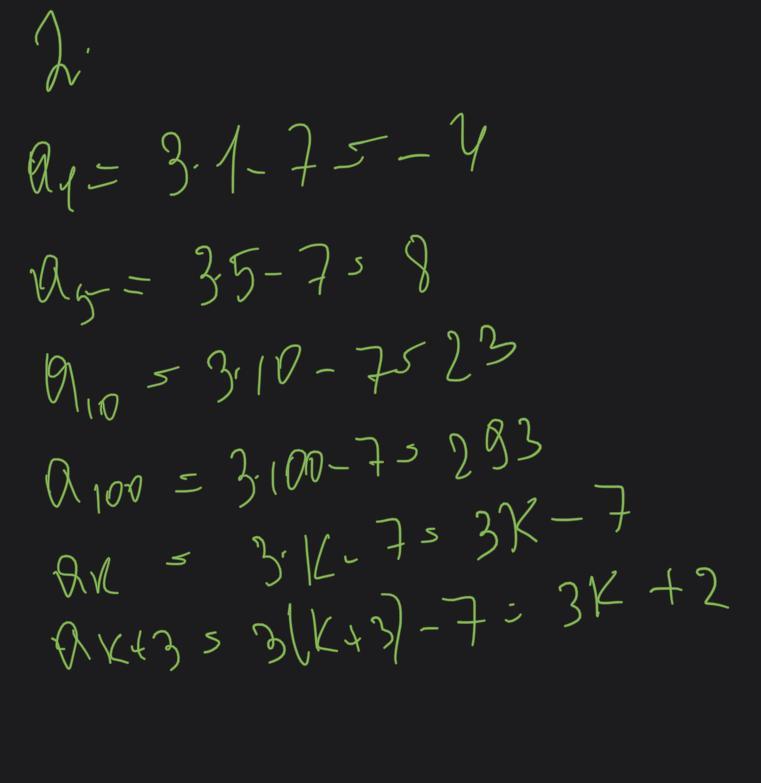 2.
a₁ = 3·1 - 7 = -4
a₅ = 3·5 - 7 = 8
a₁₀ = 3·10 - 7 = 23
a₁₀₀ = 3·100 - 7 = 293
aₖ = 3·k - 7 = 3k - 7
aₖ₊₃ = 3(k+3) - 7 = 3k + 2